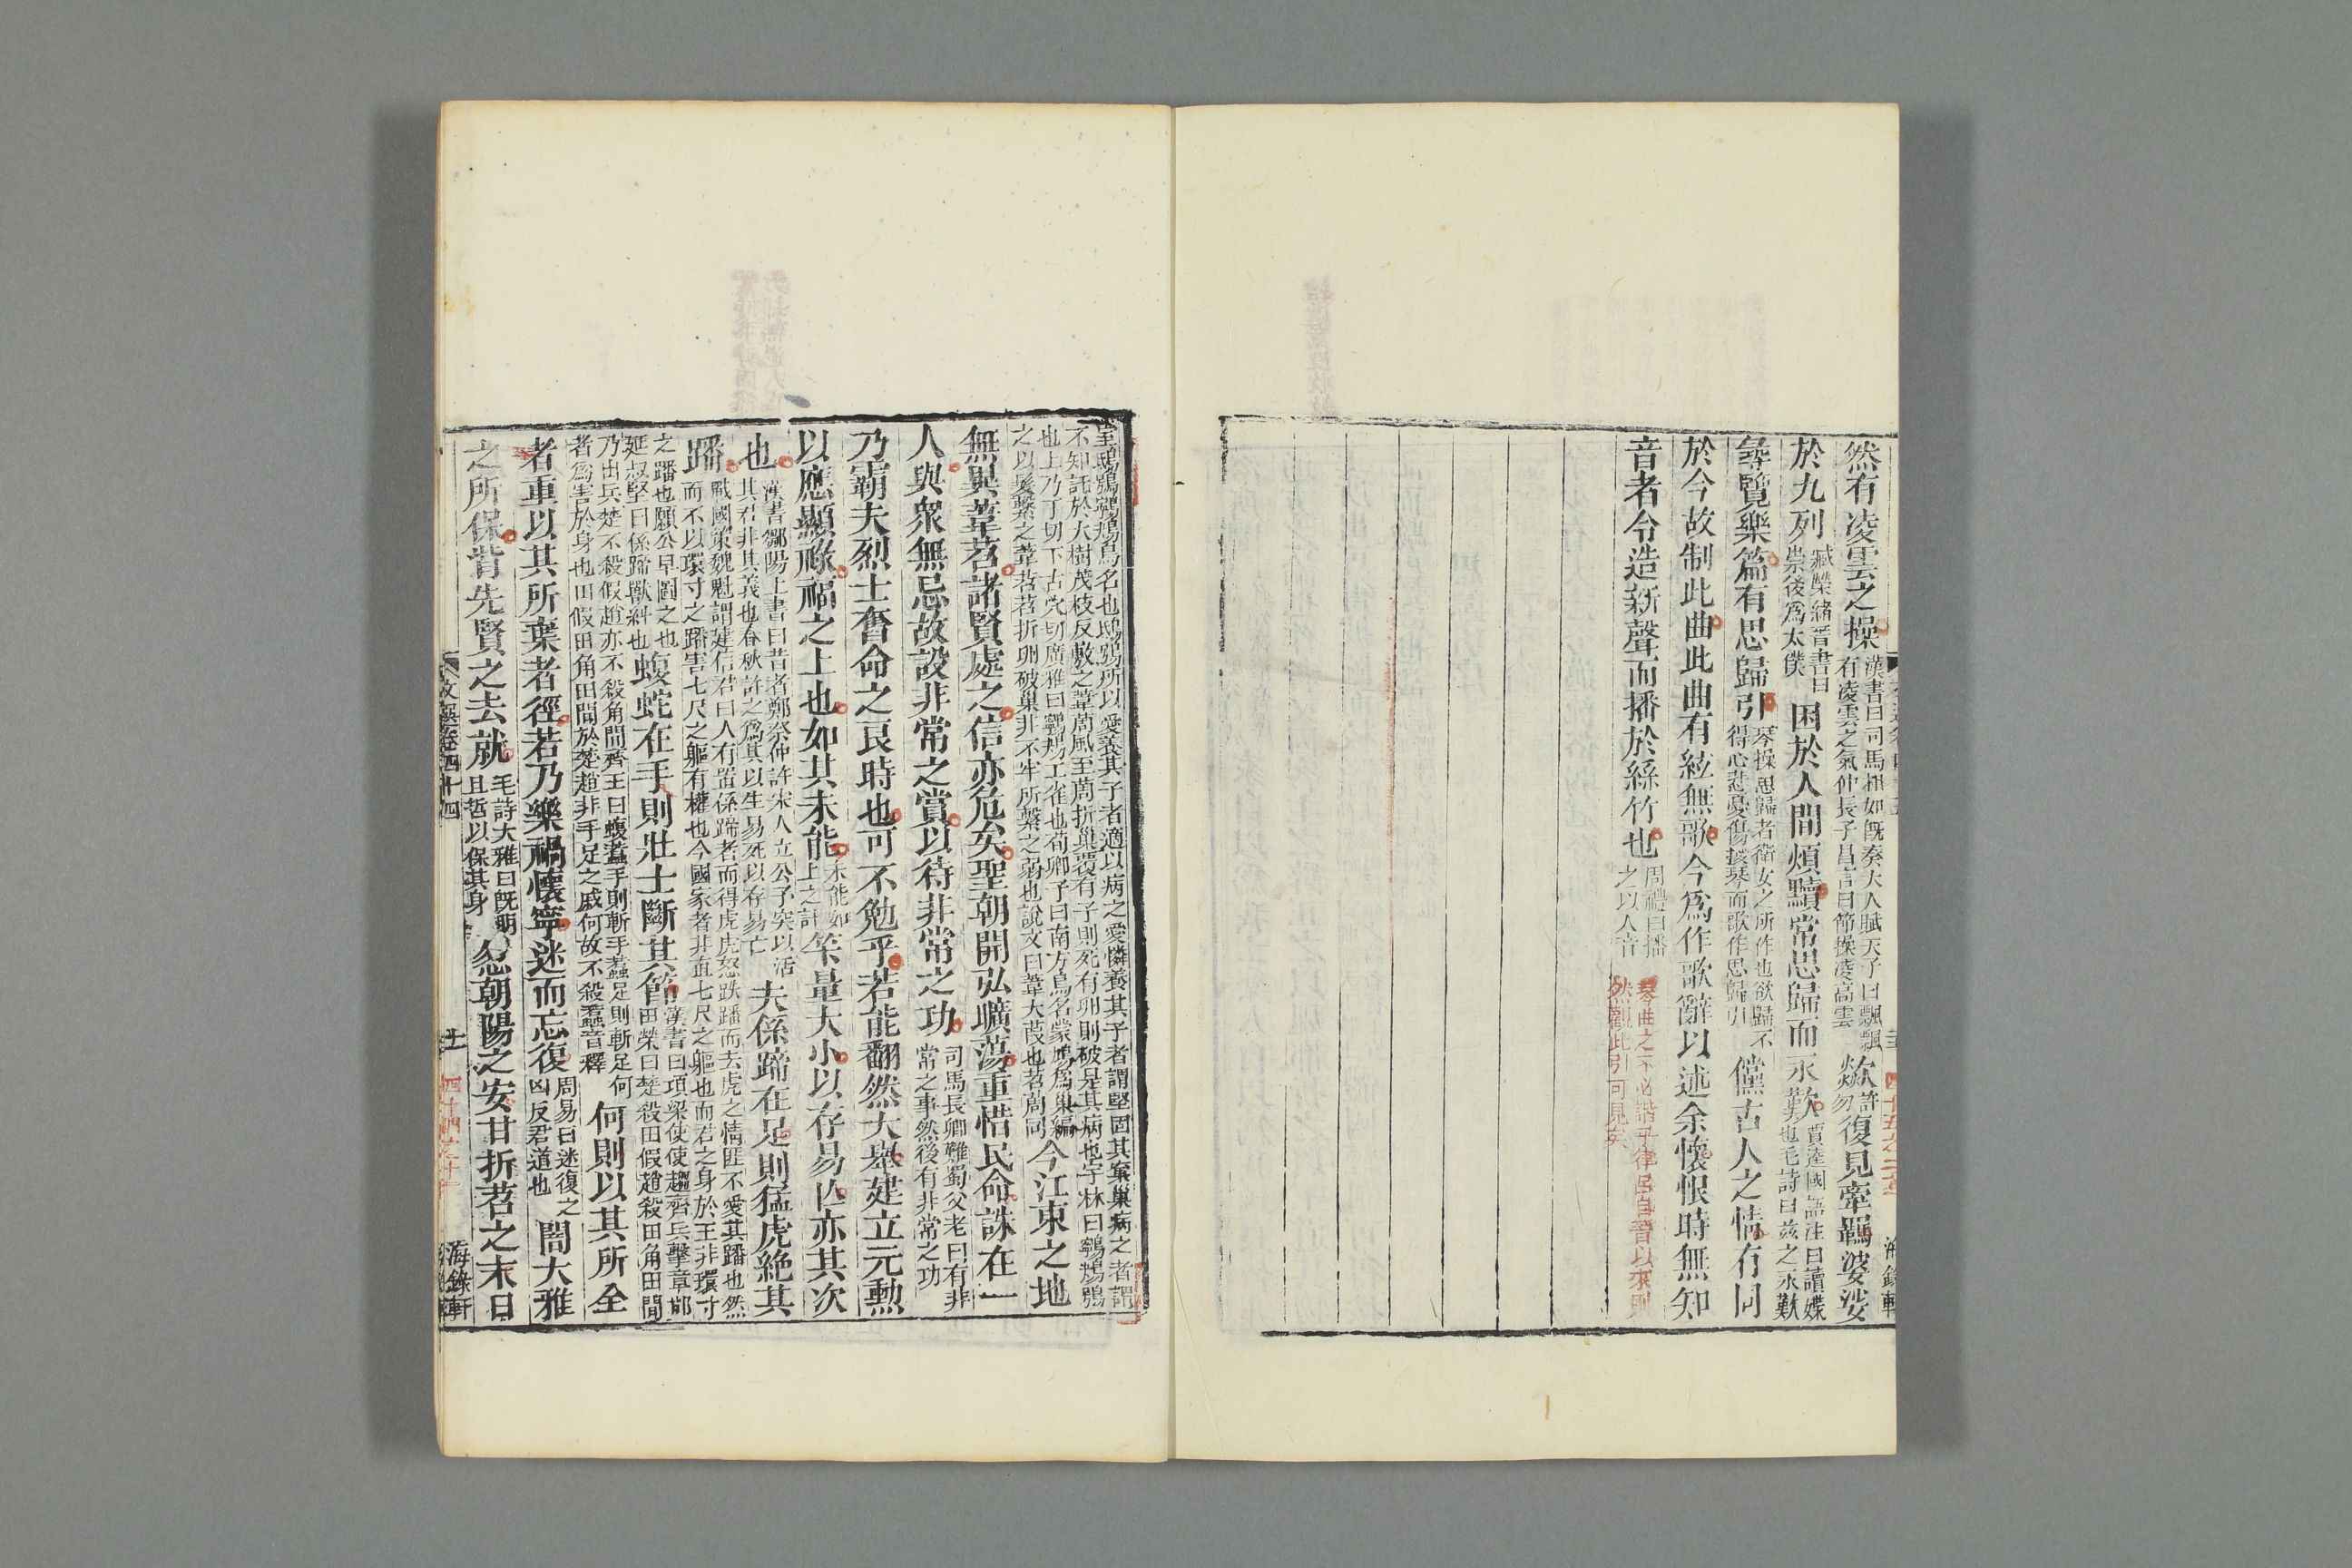 然有凌雲之操漢書曰司馬相如旣奏大人賦天子曰飄飄有凌雲之氣仲長子昌言曰節操凌高雲歘許勿復見牽羈婆娑
於九列臧榮緒晉書曰崇後爲太僕困於人間煩黷常思歸而永歎賈逵國語注曰讀媟也毛詩曰茲之永歎
尋覽樂篇有思歸引琴操思歸者衛女之所作也欲歸不得心悲憂傷援琴而歌作思歸引儻古人之情有同
於今故制此曲此曲有絃無歌今爲作歌辭以述余懷恨時無知
音者令造新聲而播於絲竹也周禮曰播之以人音琴曲之不必諧于律呂自晉以來則然觀此引可見矣
海錄軒
至鴟鴞鸋鴂鳥名也鴟鴞所以愛養其子者適以病之愛憐養其子者謂堅固其窠巢病之者謂
不知託於大樹茂枝反敷之葦萵風至萵折巢覆有子則死有卵則破是其病也字林曰鸋鴂鴞
也上乃丁切下古穴切廣雅曰鸋鴂工雀也荀卿子曰南方鳥名蒙鳩爲巢編
之以髮繫之葦苕苕折卵破巢非不牢所繫之弱也說文曰葦大葭也苕萵同今江東之地
無異葦苕諸賢處之信亦危矣聖朝開弘曠蕩重惜民命誅在一
人與衆無忌故設非常之賞以待非常之功司馬長卿難蜀父老曰有非常之事然後有非常之功
乃霸夫烈士奮命之良時也可不勉乎若能翻然大舉建立元勲
以應顯祿福之上也如其未能未能如上之計筭量大小以存易亾亦其次
也漢書鄒陽上書曰昔者鄭祭仲許宋人立公子突以活其君非其義也春秋許之爲其以生易死以存易亡夫係蹄在足則猛虎絶其
蹯戰國策魏魁謂建信君曰人有置係蹄者而得虎虎怒跌蹯而去虎之情匪不愛其蹯也然而不以環寸之蹯害七尺之軀有權也今國家者非直七尺之軀也而君之身於王非環寸
之蹯也願公早圖之也延叔堅曰係蹄獸絆也蝮蛇在手則壯士斷其節漢書曰項梁使使趨齊兵擊章邯田榮曰楚殺田假趙殺田角田間
乃出兵楚不殺假趙亦不殺角間齊王曰蝮蠚手則斬手蠚足則斬足何者爲害於身也田假田角田間於楚趙非手足之戚何故不殺蠚音釋何則以其所全
者重以其所棄者徑若乃樂禍懷寧迷而忘復周易曰迷復之凶反君道也闇大雅
之所保背先賢之去就毛詩大雅曰旣明且哲以保其身忽朝陽之安甘折苕之末日
文選卷四十四
十一
四十四之十一
海錄軒